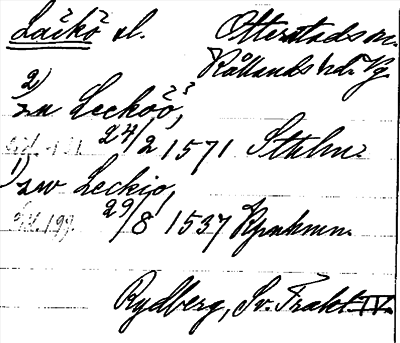 Läckö sl. Otterstads sn.
Kållands hd. Vg.
2)
zu Leckoö,
24/2 1571 Sthlm.
1) zw Leckio,
29/8 1537 Kpnhmn.
Rydberg, Sv. Trakt. IV.